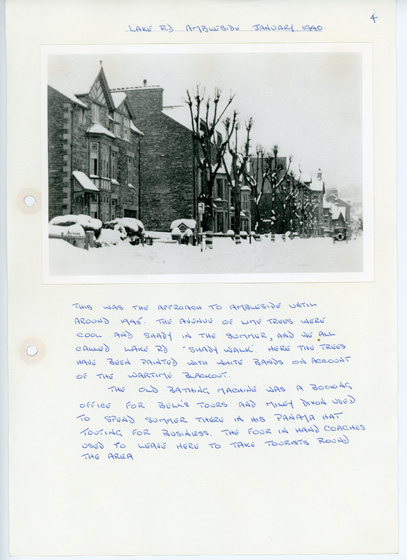 4
LAKE RD AMBLESIDE JANUARY 1940.
THIS WAS THE APPROACH TO AMBLESIDE UNTIL
AROUND 1945. THE AVENUE OF LIME TREES WERE
COOL AND SHADY IN THE SUMMER, AND WE ALL
CALLED LAKE RD "SHADY WALK. HERE THE TREES
HAVE BEEN PAINTED WITH WHITE BANDS ON ACCOUNT
OF THE WARTIME BLACKOUT.
THE OLD BATHING MACHINE WAS A BOOKING
OFFICE FOR BELL'S TOURS AND MILEY DIXON USED
TO SPEND SUMMER THERE IN HIS PANAMA HAT
TOUTING FOR BUSINESS. THE FOUR IN HAND COACHES
USED TO LEAVE HERE TO TAKE TOURISTS ROUND
THE AREA